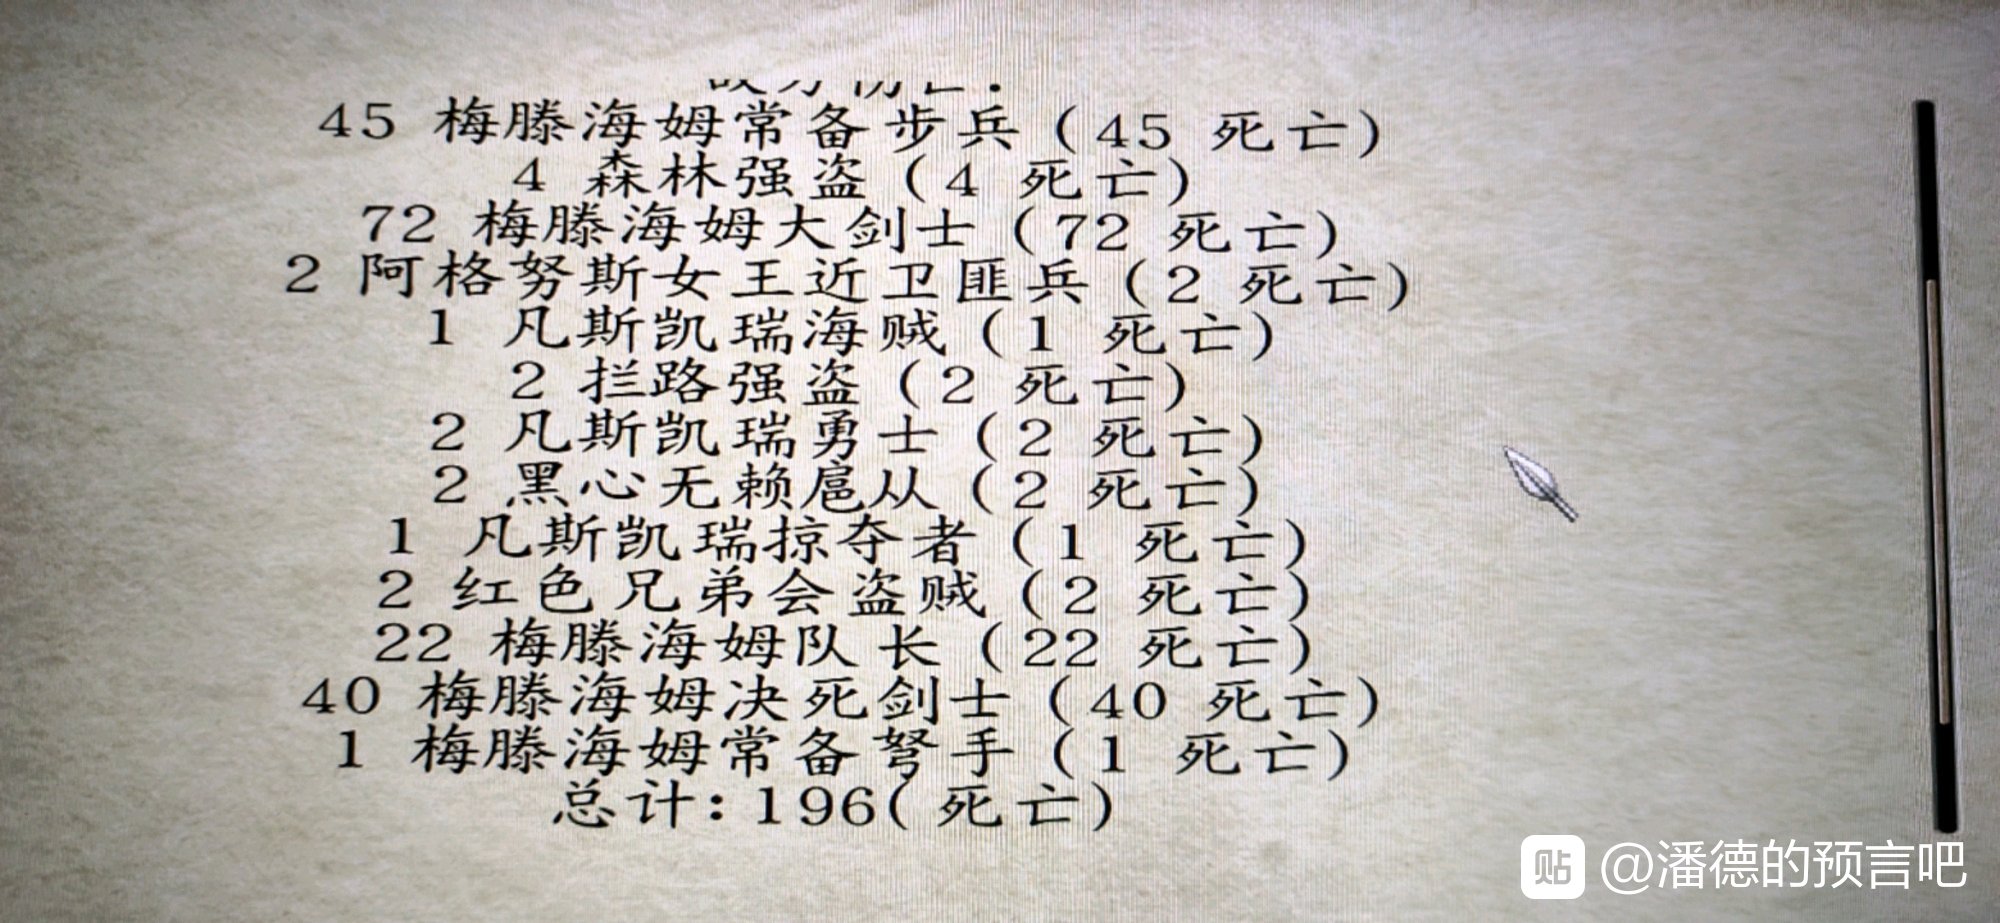 45 梅滕海姆常备步兵(45 死亡)
4 森林强盗(4 死亡)
72 梅滕海姆大剑士(72 死亡)
2 阿格努斯女王近卫匪兵(2 死亡)
1 凡斯凯瑞海贼(1 死亡)
2 拦路强盗(2 死亡)
2 凡斯凯瑞勇士(2 死亡)
2 黑心无赖扈从(2 死亡)
1 凡斯凯瑞掠夺者(1 死亡)
2 红色兄弟会盗贼(2 死亡)
22 梅滕海姆队长(22 死亡)
40 梅滕海姆决死剑士(40 死亡)
1 梅滕海姆常备弩手(1 死亡)
总计:196(死亡)
贴 @潘德的预言吧